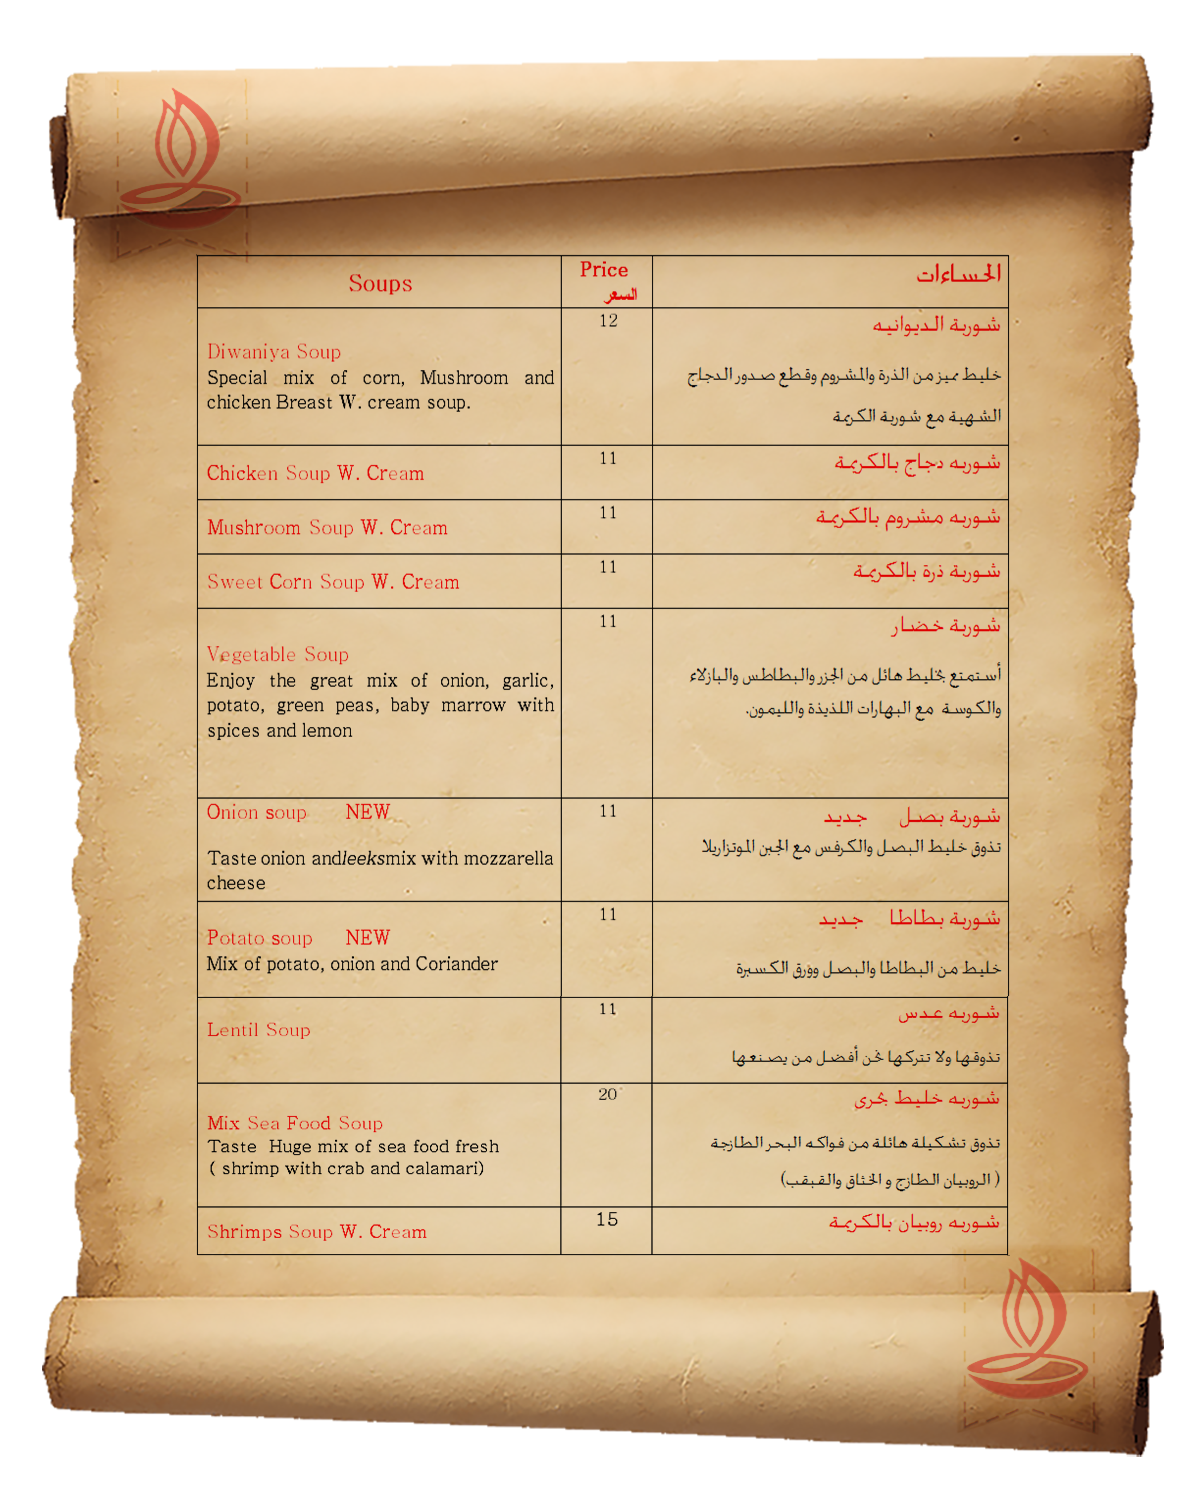 Soups
Price
السعر
الحساءات
Diwaniya Soup
Special mix of corn, Mushroom and
chicken Breast W. cream soup.
12
شوربة الديوانيه
خليط مميز من الذرة والمشروم وقطع صدور الدجاج
الشهية مع شوربة الكريمة
Chicken Soup W. Cream
11
شوربه دجاج بالكريمة
Mushroom Soup W. Cream
11
شوربه مشروم بالكريمة
Sweet Corn Soup W. Cream
11
شوربة ذرة بالكريمة
Vegetable Soup
Enjoy the great mix of onion, garlic,
potato, green peas, baby marrow with
spices and lemon
11
شوربة خضار
أستمتع بخليط هائل من الجزر والبطاطس والبازلاء
والكوسة مع البهارات اللذيذة والليمون.
Onion soup NEW
Taste onion andleeksmix with mozzarella
cheese
11
شوربة بصل جديد
تذوق خليط البصل والكرفس مع الجبن الموتزاريلا
Potato soup NEW
Mix of potato, onion and Coriander
11
شوربة بطاطا جديد
خليط من البطاطا والبصل وورق الكسبرة
Lentil Soup
11
شوربه عدس
تذوقها ولا تتركها نحن أفضل من يصنعها
Mix Sea Food Soup
Taste Huge mix of sea food fresh
( shrimp with crab and calamari)
20
شوربه خليط بحرى
تذوق تشكيلة هائلة من فواكه البحر الطازجة
( الروبيان الطازج و الخثاق والقبقب)
Shrimps Soup W. Cream
15
شوربه روبيان بالكريمة